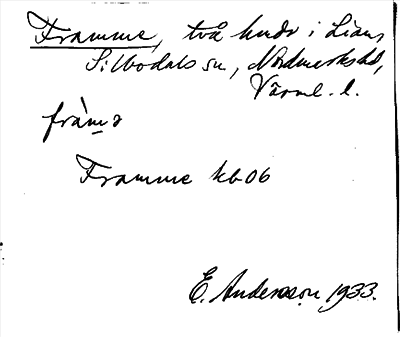 Framme, två hmdr i Lian,
Silbodals sn, Nordmarks hd,
Värml. l.
fràm̲ə
Framme kb 06
E. Andersson 1933.